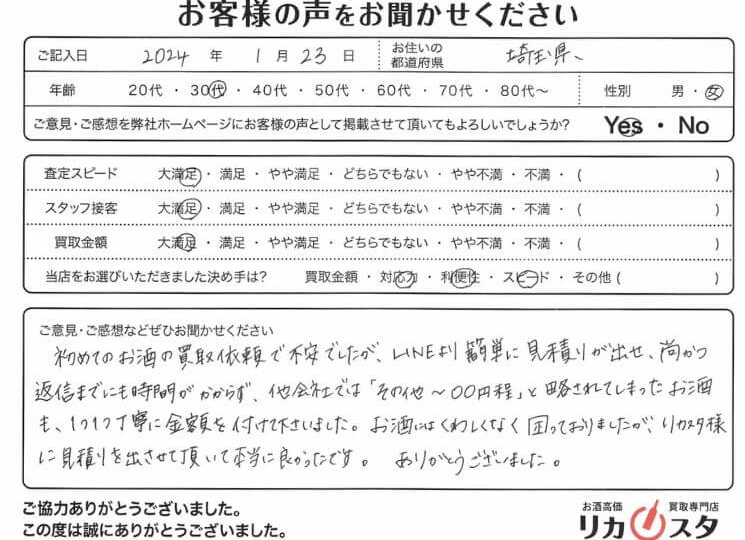 お客様の声をお聞かせください
ご記入日 2024 年 1 月 23 日 お住いの都道府県 埼玉県
年齢 20代 ・ 30代 ・ 40代 ・ 50代 ・ 60代 ・ 70代 ・ 80代～ 性別 男 ・ 女
ご意見・ご感想を弊社ホームページにお客様の声として掲載させて頂いてもよろしいでしょうか? Yes ・ No
査定スピード 大満足 ・ 満足 ・ やや満足 ・ どちらでもない ・ やや不満 ・ 不満 ・ ( )
スタッフ接客 大満足 ・ 満足 ・ やや満足 ・ どちらでもない ・ やや不満 ・ 不満 ・ ( )
買取金額 大満足 ・ 満足 ・ やや満足 ・ どちらでもない ・ やや不満 ・ 不満 ・ ( )
当店をお選びいただきました決め手は? 買取金額 ・ 対応力 ・ 利便性 ・ スピード ・ その他 ( )
ご意見・ご感想などぜひお聞かせください
初めてのお酒の買取依頼で不安でしたが、LINEより簡単に見積りが出せ、尚かつ
返信までにも時間がかからず、他会社では「その他～〇〇円程」と略されてしまったお酒
も、1つ1つ丁寧に金額を付けて下さいました。お酒にはくわしくなく困っておりましたが、リカスタ様
に見積りを出させて頂いて本当に良かったです。 ありがとうございました。
ご協力ありがとうございました。
この度は誠にありがとうございました。
お酒高価 買取専門店
リカスタ